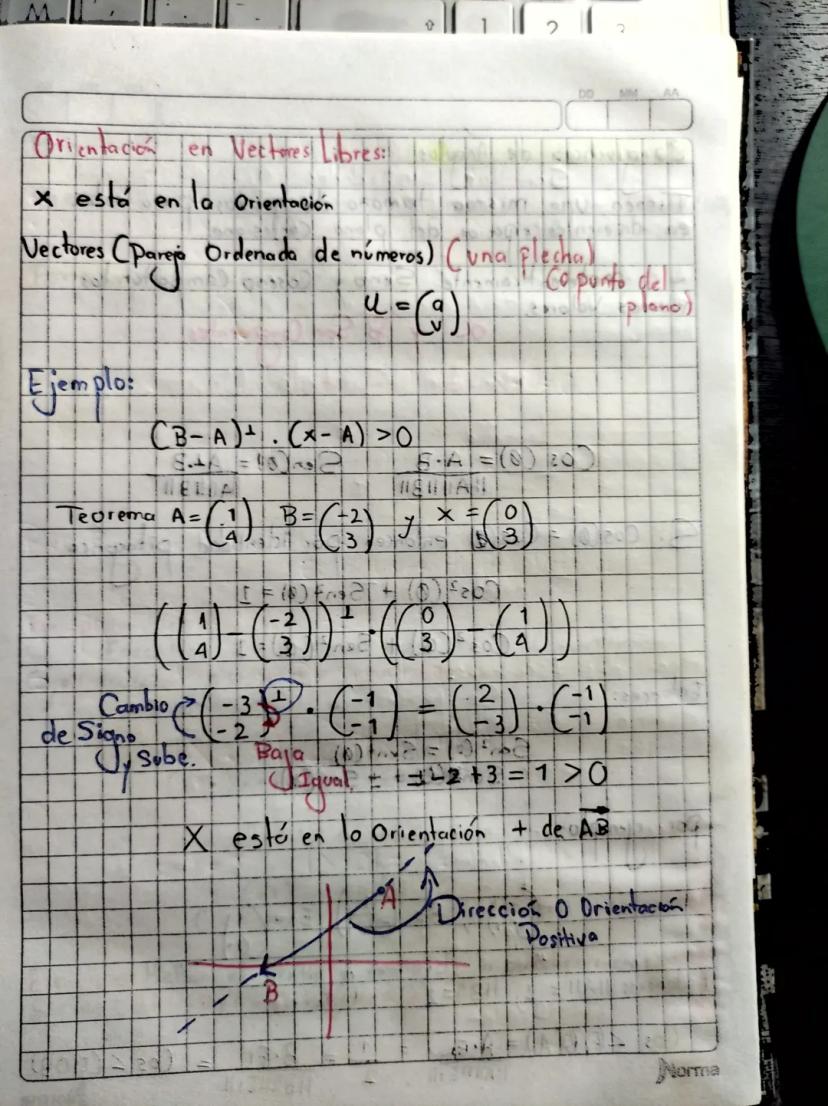 1 2 3
DD MM AA
Orientación en Vectores Libres:
x está en la Orientación
Vectores (Pareja Ordenada de números) (una flecha)
(o punto del plano)
u = (a v)
Ejemplo:
(B-A)⊥ . (x-A) >0
Teorema A=(1 4) B=(-2 3) y x=(0 3)
((1 4)-(-2 3))⊥ · ((0 3)-(1 4))
Cambio de Signo y Sube. (-3 -2)⊥ · (-1 -1) = (2 -3) · (-1 -1)
Baja Igual
= -2+3 = 1 >0
X está en la Orientación + de AB
A
Dirección O Orientación
Positiva
B
Norma